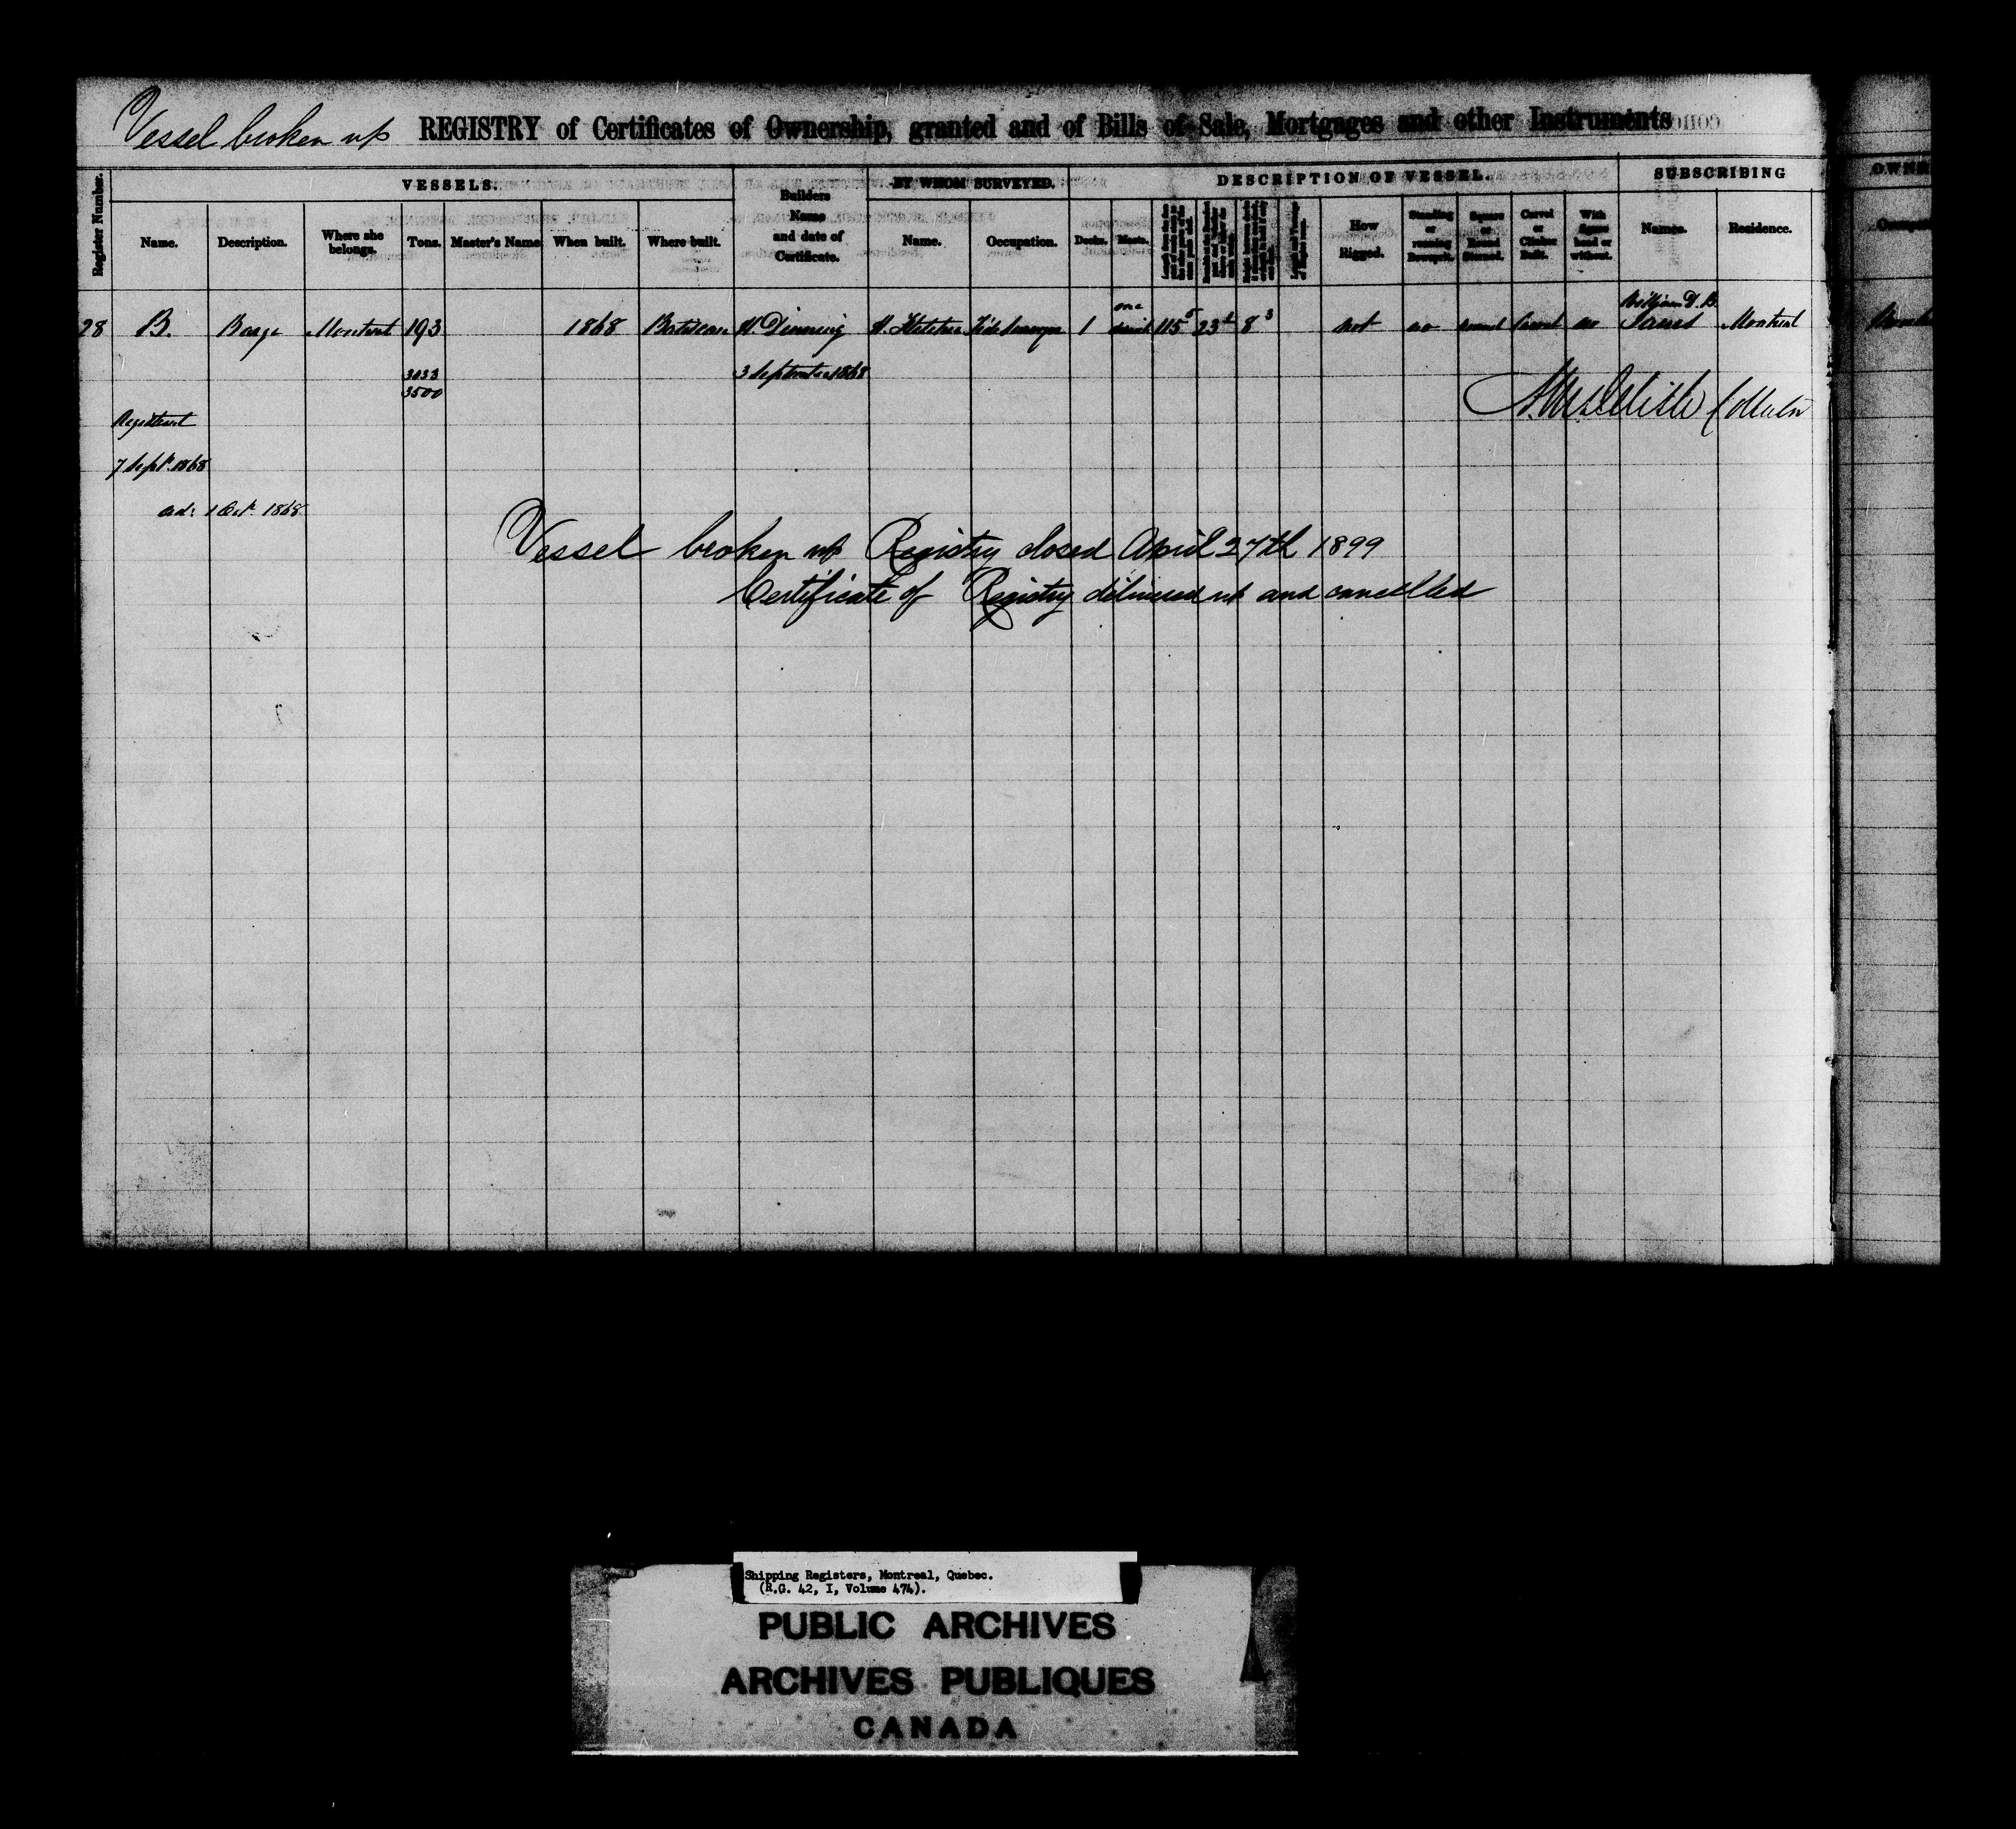 Vessel broken up REGISTRY of Certificates of Ownership, granted and of Bills of Sale, Mortgages and other Instruments
Register Number.
VESSELS.
Builders Name and date of Certificate.
BY WHOM SURVEYED.
DESCRIPTION OF VESSEL.
SUBSCRIBING
OWNE
Name. Description. Where she belongs. Tons. Master's Name When built. Where built. Name. Occupation. Decks. Masts. How Rigged. Standing or running Bowsprit. Square or Round Sterned. Carvel or Clinker Built. With figure head or without. Names. Residence.
28 B. Barge Montreal 193 1868 Batiscan H. Dinning 1 one 115 5 23 8 3 not no round Carvel no William D. B. Montreal
3033 3 September 1868
3500
Registered
7 Sept. 1868
1 Oct. 1868
Vessel broken up Registry closed April 27th 1899
Certificate of Registry delivered up and cancelled
Shipping Registers, Montreal, Quebec.
(R.G. 42, I, Volume 474).
PUBLIC ARCHIVES
ARCHIVES PUBLIQUES
CANADA